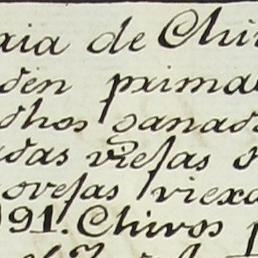 xia de Chir
den prima
dhos ganad
adas viejas
ovejas viexa
991. Chivos